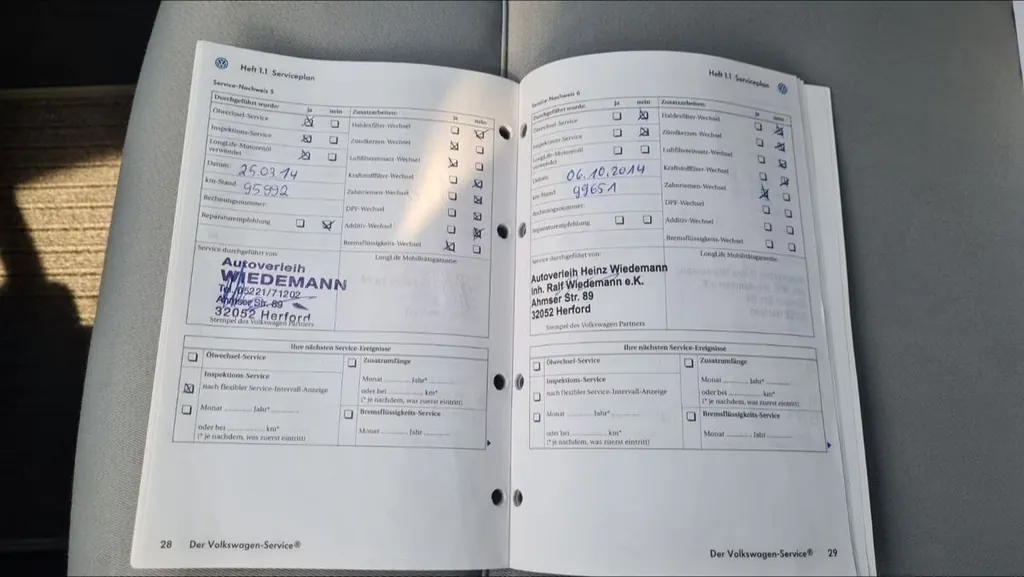 Heft 1.1 Serviceplan
Service-Nachweis 5
Durchgeführt wurde: ja nein
Ölwechsel-Service
Inspektions-Service
LongLife-Motorenöl
verwendet
Datum: 25.03.14
km-Stand: 95992
Rechnungsnummer:
Reparaturempfehlung
Zusatzarbeiten: ja nein
Haldexfilter-Wechsel
Zündkerzen-Wechsel
Luftfiltereinsatz-Wechsel
Kraftstofffilter-Wechsel
Zahnriemen-Wechsel
DPF-Wechsel
Additiv-Wechsel
Bremsflüssigkeits-Wechsel
Service durchgeführt von:
LongLife Mobilitätsgarantie
Autoverleih
WIEDEMANN
Tel. 05221/71202
Ahmser Str. 89
32052 Herford
Stempel des Volkswagen Partners
Ihre nächsten Service-Ereignisse
Ölwechsel-Service
Inspektions-Service
nach flexibler Service-Intervall-Anzeige
Monat ............ Jahr* ............
oder bei ............ km*
(* je nachdem, was zuerst eintritt)
Zusatzumfänge
Monat ............ Jahr* ............
oder bei ............ km*
(* je nachdem, was zuerst eintritt)
Bremsflüssigkeits-Service
Monat ............ Jahr ............
28 Der Volkswagen-Service®
Heft 1.1 Serviceplan
Service-Nachweis 6
Durchgeführt wurde: ja nein
Ölwechsel-Service
Inspektions-Service
LongLife-Motorenöl
verwendet
Datum: 06.10.2014
km-Stand: 99651
Rechnungsnummer:
Reparaturempfehlung
Zusatzarbeiten: ja nein
Haldexfilter-Wechsel
Zündkerzen-Wechsel
Luftfiltereinsatz-Wechsel
Kraftstofffilter-Wechsel
Zahnriemen-Wechsel
DPF-Wechsel
Additiv-Wechsel
Bremsflüssigkeits-Wechsel
Service durchgeführt von:
LongLife Mobilitätsgarantie
Autoverleih Heinz Wiedemann
Inh. Ralf Wiedemann e.K.
Ahmser Str. 89
32052 Herford
Stempel des Volkswagen Partners
Ihre nächsten Service-Ereignisse
Ölwechsel-Service
Inspektions-Service
nach flexibler Service-Intervall-Anzeige
Monat ............ Jahr* ............
oder bei ............ km*
(* je nachdem, was zuerst eintritt)
Zusatzumfänge
Monat ............ Jahr* ............
oder bei ............ km*
(* je nachdem, was zuerst eintritt)
Bremsflüssigkeits-Service
Monat ............ Jahr ............
Der Volkswagen-Service® 29